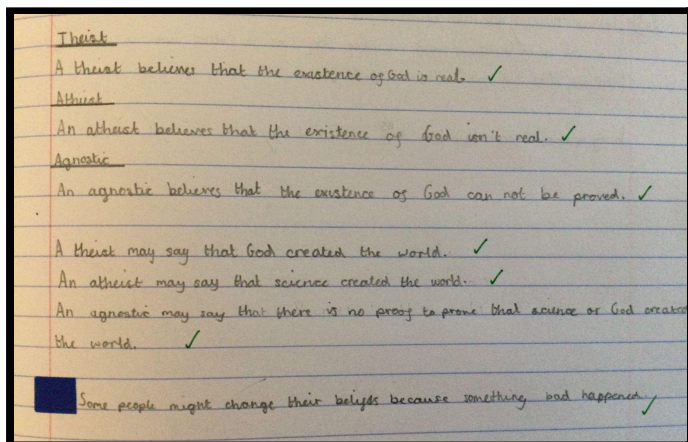 Theist
A theist believes that the existence of God is real.
Athiest
An atheist believes that the existence of God isn't real.
Agnostic
An agnostic believes that the existence of God can not be proved.
A theist may say that God created the world.
An atheist may say that science created the world.
An agnostic may say that there is no proof to prove that science or God created
the world.
Some people might change their beliefs because something bad happened.